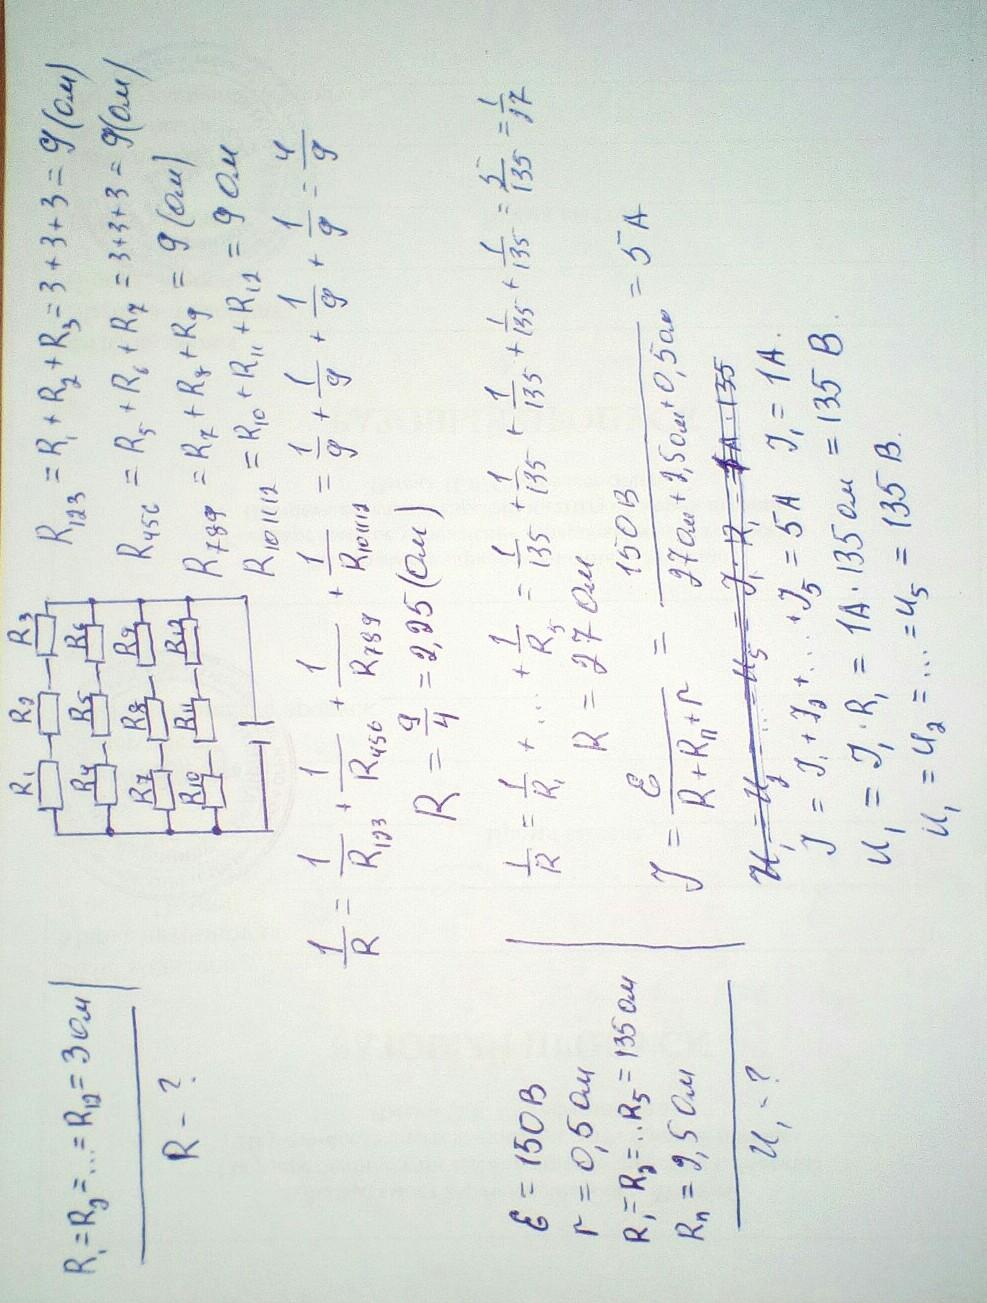 R₁=R₂=...=R₁₂=3 Ом
R-?
R₁ R₂ R₃
R₄ R₅ R₆
R₇ R₈ R₉
R₁₀ R₁₁ R₁₂
R₁₂₃ = R₁+R₂+R₃=3+3+3=9(Ом)
R₄₅₆ = R₅+R₆+R₇=3+3+3=9(Ом)
R₇₈₉ = R₇+R₈+R₉ = 9(Ом)
R₁₀₁₁₁₂ = R₁₀+R₁₁+R₁₂ = 9 Ом
1/R = 1/R₁₂₃ + 1/R₄₅₆ + 1/R₇₈₉ + 1/R₁₀₁₁₁₂ = 1/9 + 1/9 + 1/9 + 1/9 = 4/9
R = 9/4 = 2,25(Ом)
ℰ = 150В
r = 0,5 Ом
R₁=R₂=...R₅=135 Ом
Rп = 2,5 Ом
U₁-?
1/R = 1/R₁ + ... + 1/R₅ = 1/135 + 1/135 + 1/135 + 1/135 + 1/135 = 5/135 = 1/27
R = 27 Ом
I = ℰ/(R+Rп+r) = 150В/(27Ом+2,5Ом+0,5Ом) = 5А
I = I₁+I₂+...+I₅=5А I₁=1А.
U₁ = I₁·R₁ = 1А·135Ом = 135 В.
U₁ = U₂ = ... = U₅ = 135 В.